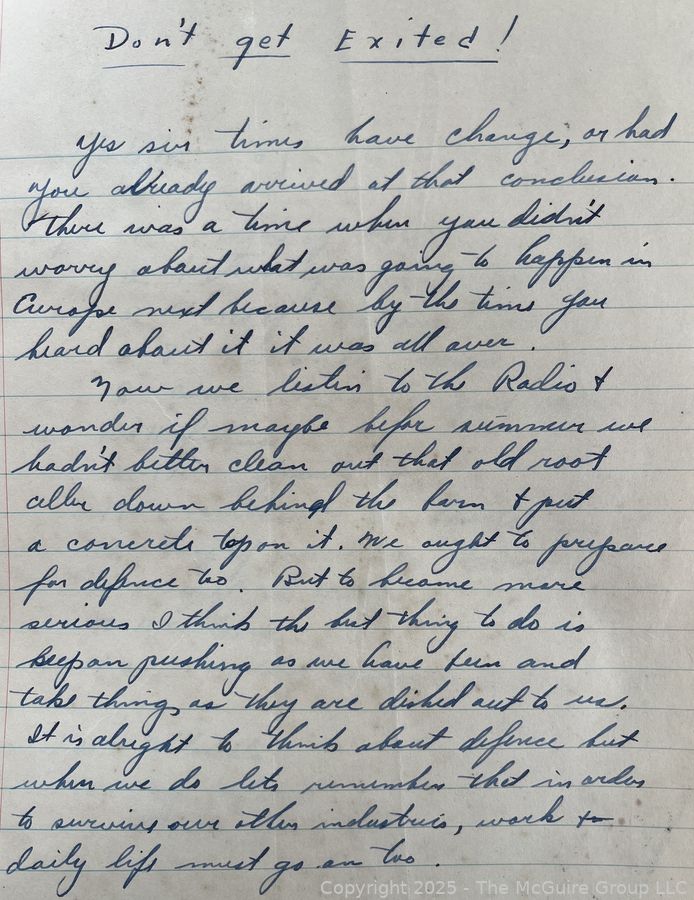 Don't get Exited!
Yes sir times have change, or had
you already arrived at that conclusion.
There was a time when you didn't
worry about what was going to happen in
Europe next because by the time you
heard about it it was all over.
Now we listin to the Radio &
wonder if maybe befor summer we
hadn't better clean out that old root
celler down behind the barn & put
a concrete top on it. We ought to prepare
for defence too. But to become more
serious I think the best thing to do is
keep on pushing as we have been and
take things as they are dished out to us.
It is alright to think about defence but
when we do lets remember that in order
to survive our other industries, work &
daily life must go on too.
Copyright 2025 - The McGuire Group LLC